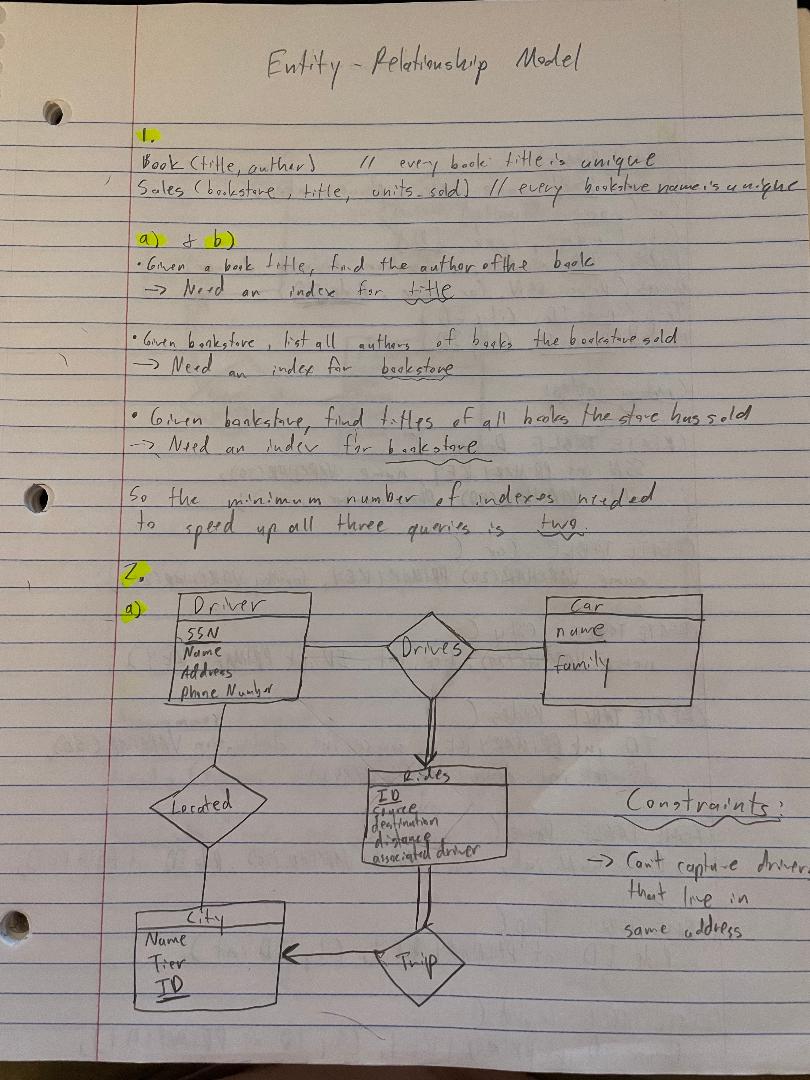 Entity-Relationship Model
1.
Book (title, author) // every book title is unique
Sales (bookstore, title, units_sold) // every bookstore name is unique
a) & b)
• Given a book title, find the author of the book
→ Need an index for title
• Given bookstore, list all authors of books the bookstore sold
→ Need an index for bookstore
• Given bookstore, find titles of all books the store has sold
→ Need an index for bookstore
So the minimum number of indexes needed
to speed up all three queries is two.
2.
a)
Driver
SSN
Name
Address
Phone Number
Drives
Car
name
family
Located
Rides
ID
source
destination
distance
associated driver
Constraints:
→ Can't capture driver
that live in
same address
City
Name
Tier
ID
Trip